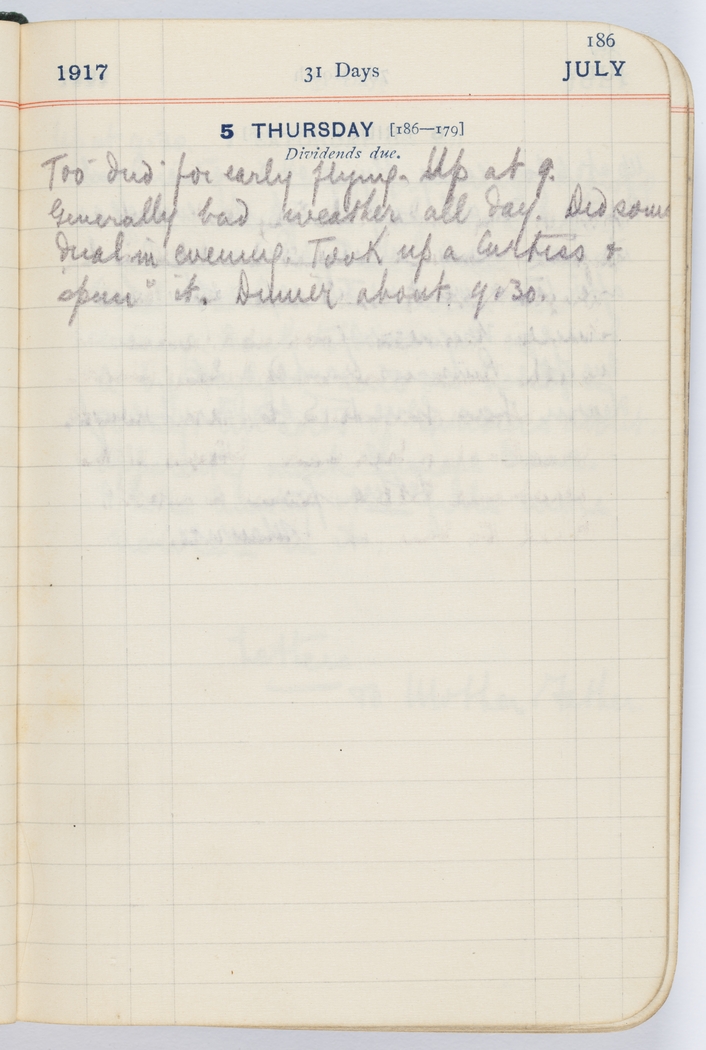 186
1917 31 Days JULY
5 THURSDAY [186—179]
Dividends due.
Too "dud" for early flying. Up at 9.
Generally bad weather all day. Did some
dual in evening. Took up a Curtiss &
"spun" it. Dinner about 9.30.